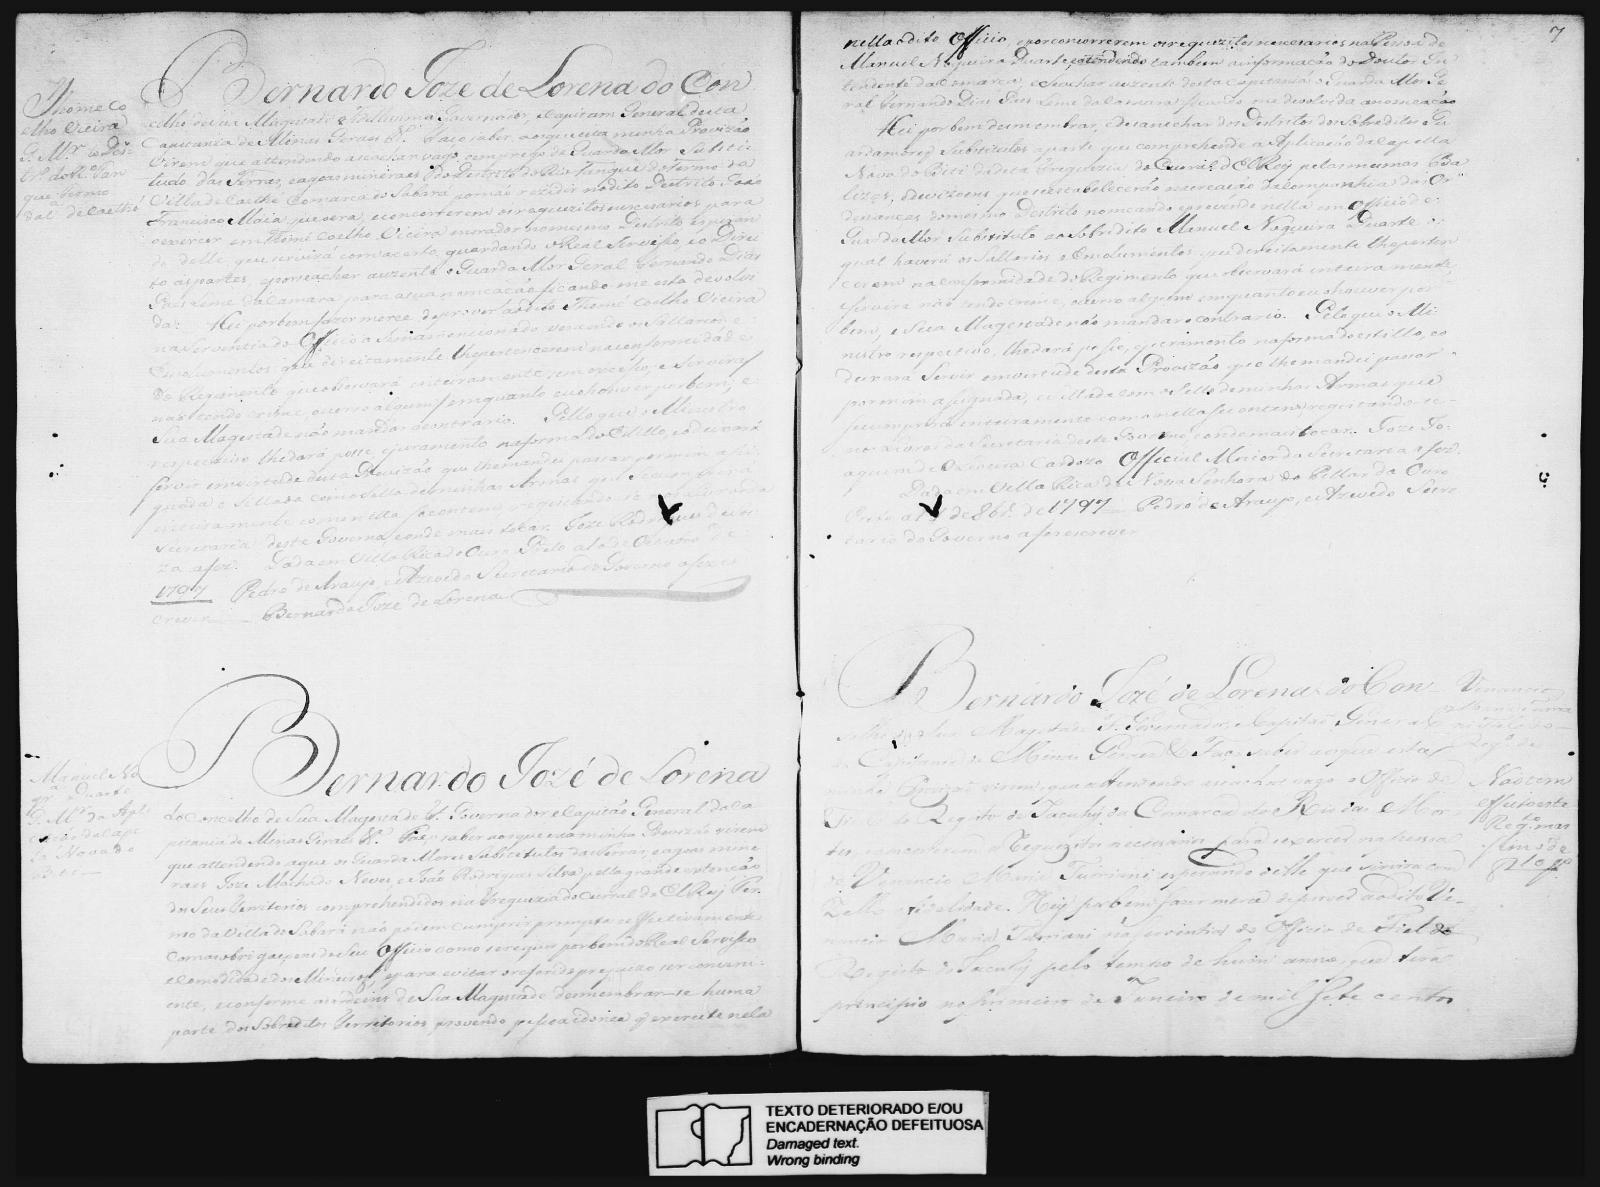 Thomé Co
elho Vieira
G. Mr. do Des
Bernardo Joze de Lorena do Con
celho de Sua Magestade Fidellissima Governador, e Capitam General desta
Capitania de Minas Geraes &ª. Faço saber, aos que esta minha Provizão
virem que attendendo a se achar vago o emprego de Guarda Mor Substi
tudo das Terras, e agoas mineraes do Destrito do Rio Tanque do Termo da
Villa de Caethé Comarca do Sabará por não rezidir no dito Destrito João
Francisco Maia, que o era, e concorrerem os requezitos necessarios para
o exercer em Thomé Coelho Vieira morador no mesmo Destrito esperan
do delle, que servirá com acerto, guardando o Real Serviço, e o Direi
to ás partes, e por se achar auzente o Guarda Mor Geral Fernando Dias
Paes Leme da Camara para a sua nomeação ficando me esta devolvi
da: Hei por bem fazer merce de prover ao dito Thomé Coelho Vieira
na Serventia do Officio a sima mencionado vencendo os Sallarios, e
Emolumentos que direitamente lhe pertencerem na conformidade
do Regimento que observará inteiramente, sem excesso, e Servirá
não tendo crime, ou erro algum, emquanto eu o houver por bem, e
Sua Magestade não mandar o contrario. Pello que o Ministro
respectivo lhe dará posse, e juramento na forma do Estillo, e o deixará
servir em virtude desta Provizão que lhe mandei passar por mim assi
gnada e Sellada com o Sello de minhas Armas que se cumprirá
inteiramente como nella se contem, registando-se na
Secretaria deste Governo, e onde mais tocar. Joze Rodrigues de
za a fez. Dada em Villa Rica do Ouro Preto a 10 de Outubro de
1797 Pedro de Araujo, e Azevedo Secretario do Governo a fez es
crever Bernardo Joze de Lorena
Manuel No
gra. Duarte
G. Mr. da Apli
cação da Cape
la Nova do
Biti
Bernardo Jozé de Lorena
do Concelho de Sua Magestade F. Governador e Capitão General da Ca
pitania de Minas Geraes &ª. Faço saber aos que esta minha Provizão virem
que attendendo a que os Guarda Mores Substitutos das Terras, e agoas mine
raes Joze Machado Neves, e João Rodrigues Silva, pella grande extenção
dos Seus Territorios comprehendidos na Freguezia do Curral de El Rey Ter
mo da Villa do Sabará não podem cumprir prompta e effectivamente
com as obrigaçoens do Seu Officio como se requer por bem do Real Serviço
e Comodidade dos Mineiros, e para evitar o referido prejuizo ser conveni
ente, e conforme as ordens de Sua Magestade desmembrar-se huma
parte dos Sobreditos Territorios, provendo pessoa idonea q exercite nela
7
nella o dito Officio, e por concorrerem os requezitos necessarios na Pessoa de
Manuel Nogueira Duarte, attendendo tambem a informação do Doutor In
tendente da Comarca, e Se achar auzente desta Capitania o Guarda Mor Ge
ral Fernando Dias Paes Leme da Camara ficando me devoluta a nomeação
Hei por bem desmembrar, e desanexar dos Destritos dos Sobreditos Gu
ardamores Substitutos a parte que comprehende a Aplicação da Capella
Nova do Biti da dita Freguezia do Curral d'El Rey pelas mesmas Ba
lizas, e devizoens que se estabelecerão na creação da Companhia das Or
denanças do mesmo Destrito nomeando e provendo nella em Officio de
Guarda Mor Substituto ao Sobredito Manuel Nogueira Duarte o
qual haverá os Sallarios e Emolumentos que direitamente lhe perten
cerem na conformidade do Regimento que observará inteiramente,
Servirá não tendo crime, ou erro algum emquanto eu o houver por
bem, e Sua Magestade não mandar o contrario. Pelo que o Mi
nistro respectivo, lhe dará posse, e juramento na forma do estillo, e o
deixará Servir em virtude desta Provizão que lhe mandei passar
por mim assignada, e sellada com o Sello de minhas Armas que
se cumprirá inteiramente como nella se contem registando-se
nos Livros da Secretaria deste Governo, e onde mais tocar. Joze Jo
aquim de Oliveira Cardozo Official Maior da Secretaria a fez.
Dada em Villa Rica de Nossa Senhora do Pillar do Ouro
Preto a de 8br.º de 1797 Pedro de Araujo, e Azevedo Secre
tario do Governo a fez escrever
Bernardo Jozé de Lorena do Con
selho de Sua Magestade F. Governador, e Capitaõ General
da Capitania de Minas Geraes &ª Faço saber aos que esta
minha Provizaõ virem, que attendendo a se achar vago o Officio de
Fiel do Registo de Jacuhy da Comarca do Rio das Mor
tes, e concorrerem os Requezitos necessarios para o exercer na pessoa
de Venancio Maria Turriani esperando delle que servirá com
Zello e fidelidade. Hey por bem fazer merce de prover ao dito Ve
nancio Maria Turriani na serventia do Officio de Fiel do
Registo de Jacuhy pelo tempo de hum anno, que terá
principio no primeiro de Janeiro de mil Sete centos
Venancio
Maria Turria
ni Fiel do
Reg.º de
Naõ tem
effeito este
Reg.to mas
sim o de
f 10
TEXTO DETERIORADO E/OU
ENCADERNAÇÃO DEFEITUOSA
Damaged text.
Wrong binding